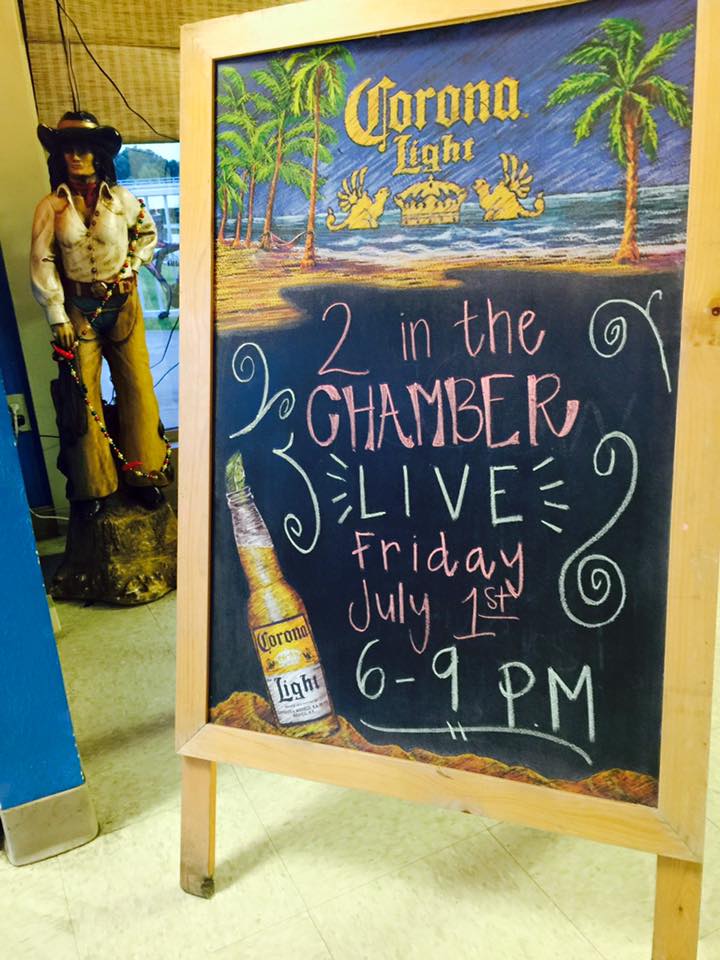 Corona
Light
2 in the
CHAMBER
LIVE
Friday
July 1st
6-9 P.M
Corona
Light